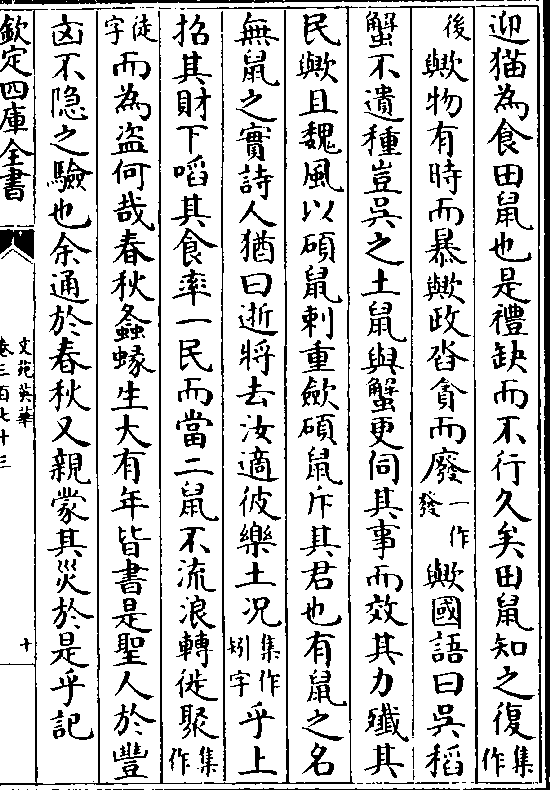 迎猫為食田鼠也是禮缺而不行久矣田鼠知之復集作
後歟物有時而暴歟政沓貪而廢一作發歟國語曰吳稻
蟹不遺種豈吳之土鼠與蟹更伺其事而效其力殱其
民歟且魏風以碩鼠刺重斂碩鼠斥其君也有鼠之名
無鼠之實詩人猶曰逝將去汝適彼樂土况集作矧字乎上
招其財下啗其食率一民而當二鼠不流浪轉徙聚集作
徒字而為盗何哉春秋螽蝝生大有年皆書是聖人於豐
凶不隐之驗也余通於春秋又親蒙其災於是乎記
欽定四庫全書
文苑英華
卷三百七十三
十